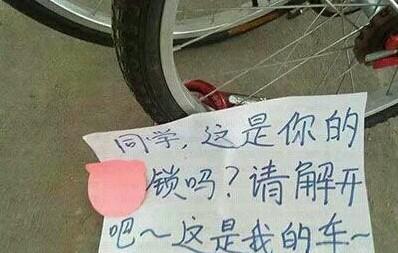 同学，这是你的
锁吗？请解开
吧～这是我的车～